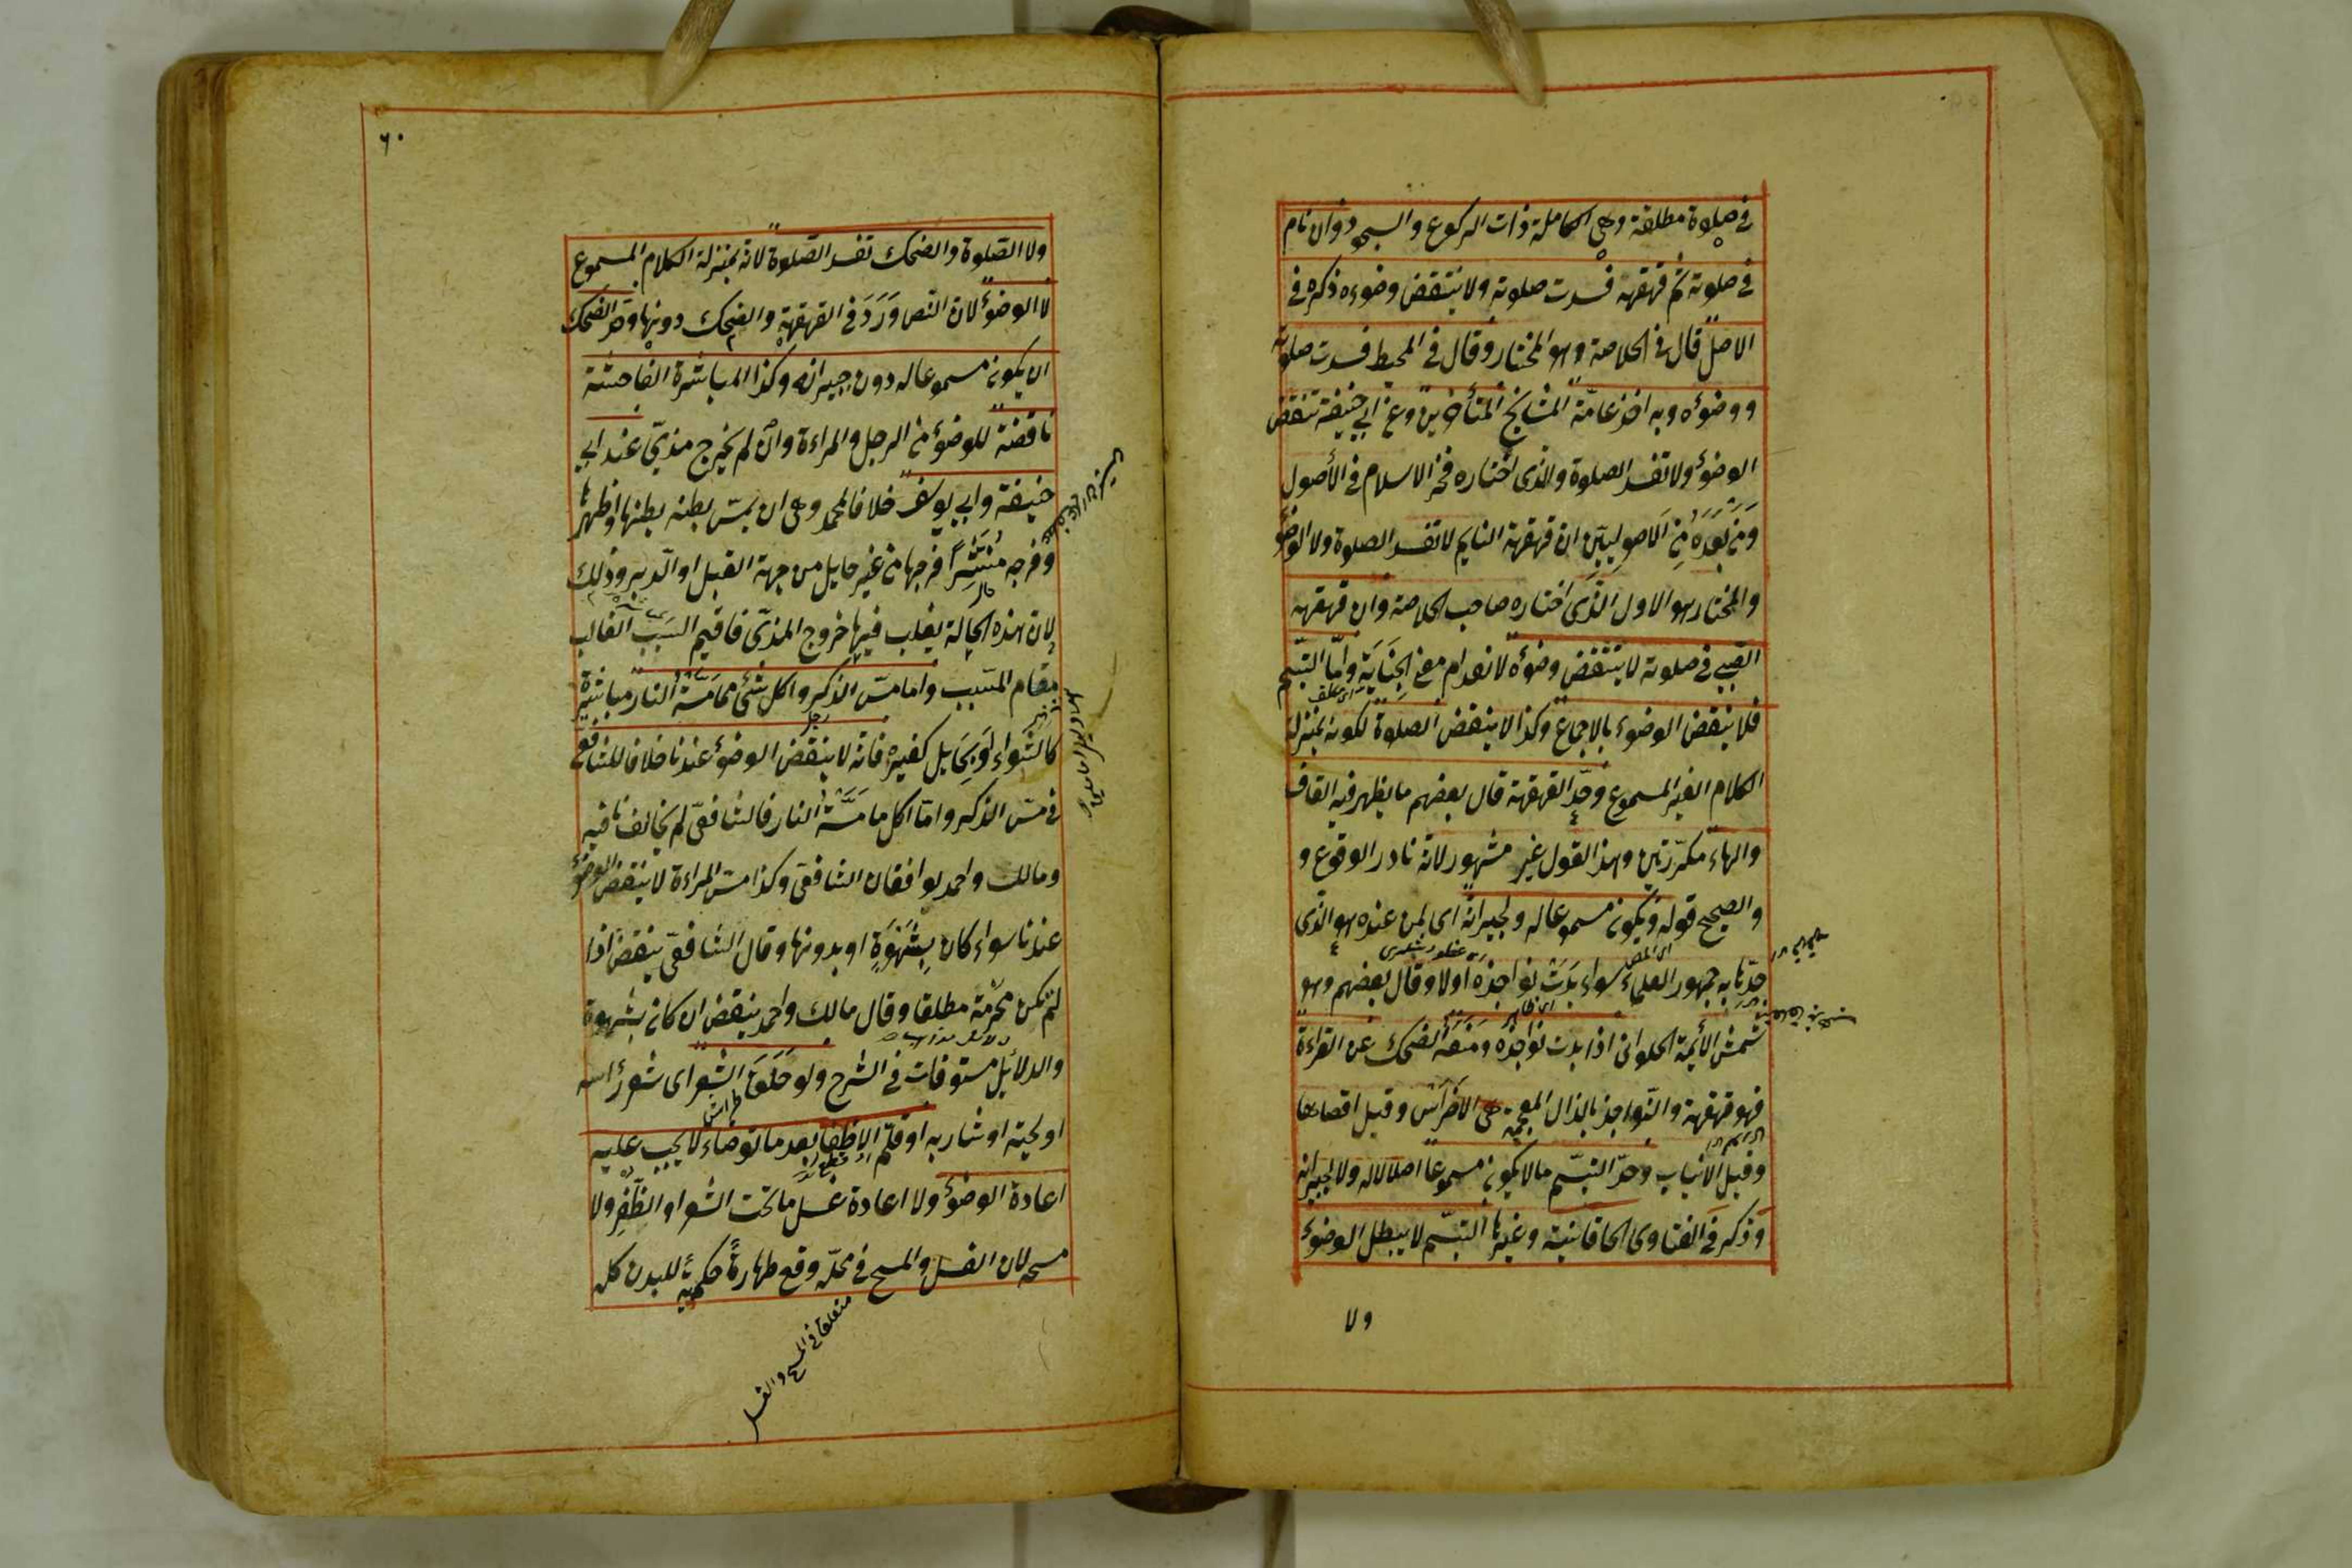 في صلوة مطلقة وهي الكاملة ذات الركوع والسجود وان نام
في صلوته ثم قهقهه فسدت صلوته ولا ينتقض وضوءه ذكره في
الاصل قال في الخلاصة وهو المختار وقال في المحيط فسدت صلوته
ووضوءه وبه اخذ عامّة المشايخ المتأخرين وعن ابي حنيفة تنقض
الوضوء ولا تفسد الصلوة والذى اختاره فخر الاسلام في الأصول
وَمَن بَعْدَهُ مِنَ الاصوليين ان قهقهة النايم لا تفسد الصلوة ولا الوضوء
والمختار هو الاول الّذى اختاره صاحب الخلاصة وان قهقهه
الصبي في صلوته لا ينتقض وضوءه لانعدام معنى الجِنَايَة وامّا التبسّم
فلا ينقض الوضوء بالاجماع وكذا لا ينقض الصلوة لكونه بمنزلة
الكلام الغير المسموع وحدّ القهقهة قال بعضهم ما يظهر فيه القاف
والهاء مكرّرتين وهذا القول غير مشهور لانه نادر الوقوع و
والصحيح قوله ويكون مسموعا له ولجيرانه اى لمن عنده هو الّذى
حدّها به جمهور العلماء سواء بَدَتْ نواجذه اولا وقال بعضهم وهو
شمش الأئمة الحلوانى اذا بدت نواجذه ومَنَعَهُ الضحك عن القراءة
فهو قهقهة والنّواجذ بالذال المعجمة هى الاضراس وقيل اقصاها
وقيل الانياب وحدّ التبسّم ما لا يكون مسموعا اصلا لا له ولا لجيرانه
وذكر في الفتاوى الخاقانية وغيرها التبسّم لا يبطل الوضوء
ولا
٦٠
ولا الصّلوة والضحك تفسد الصّلوة لانه بمنزلة الكلام المسموع
لا الوضوء لان النّص وَرَدَ في القهقهة والضحك دونها وحدّ الضحك
ان يكون مسموعا له دون جيرانه وكذا المباشرة الفاحشة
ناقضة للوضوء من الرجل والمراءة وان لم يخرج مذىّ عند ابى
حنيفة وابى يوسف خلافا لمحمد وهى ان يمسّ بطنه بطنها او ظهرها
وفرجه مُنْتَشِرًا فرجها من غير حايل من جهة القبل او الدبر وذلك
لان هذه الحالة يغلب فيها خروج المذىّ فاقيم السَبَب الغالب
مقام المسّبب واما مسّ الذكر واكل شئ ممّا مَسَّتْهُ النار مباشرة
كالشّواء او بِحَايل كغيره فانه لا ينقض الوضوء عندنا خلافا للشافعى
في مسّ الذكر وامّا اكل ما مَسَّتْهُ النار فالشافعىّ لم يخالفنا فيه
ومالك واحمد يوافقان الشافعى وكذا مسّ المراءة لا ينقض الوضوء
عندنا سواء كان بِشَهْوَةٍ او بدونها وقال الشافعىّ ينقض اذا
لم تكن محرّمة مطلقا وقال مالك واحمد ينقض ان كان بشهوة
والدلائل مستوفات في الشرح ولو حَلَقَ الشعر اى شعر رأسه
او لحيته او شاربه او قلّم الاظفار بعد ما توضاء لا يجب عليه
اعادة الوضوء ولا اعادة غسل ما تحت الشعر او الظّفر ولا
مسحه لان الغسل والمسح في محلّه وقع طهارةً حكميةً للبدن كله
متعلق في المسح والغسل